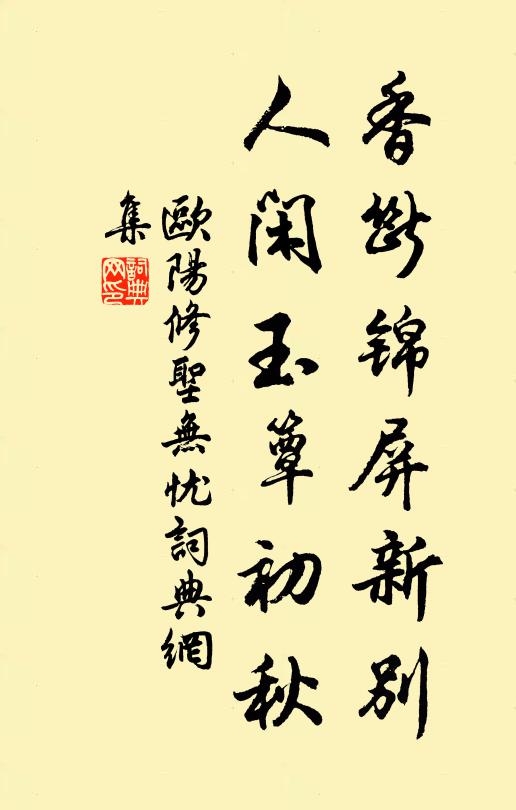 香斷錦屏新別
人閑玉簟初秋
歐陽修聖無忧詞典網
集
詞典
网印